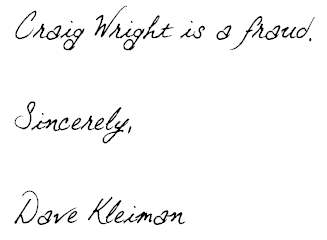 Craig Wright is a fraud.
Sincerely,
Dave Kleiman